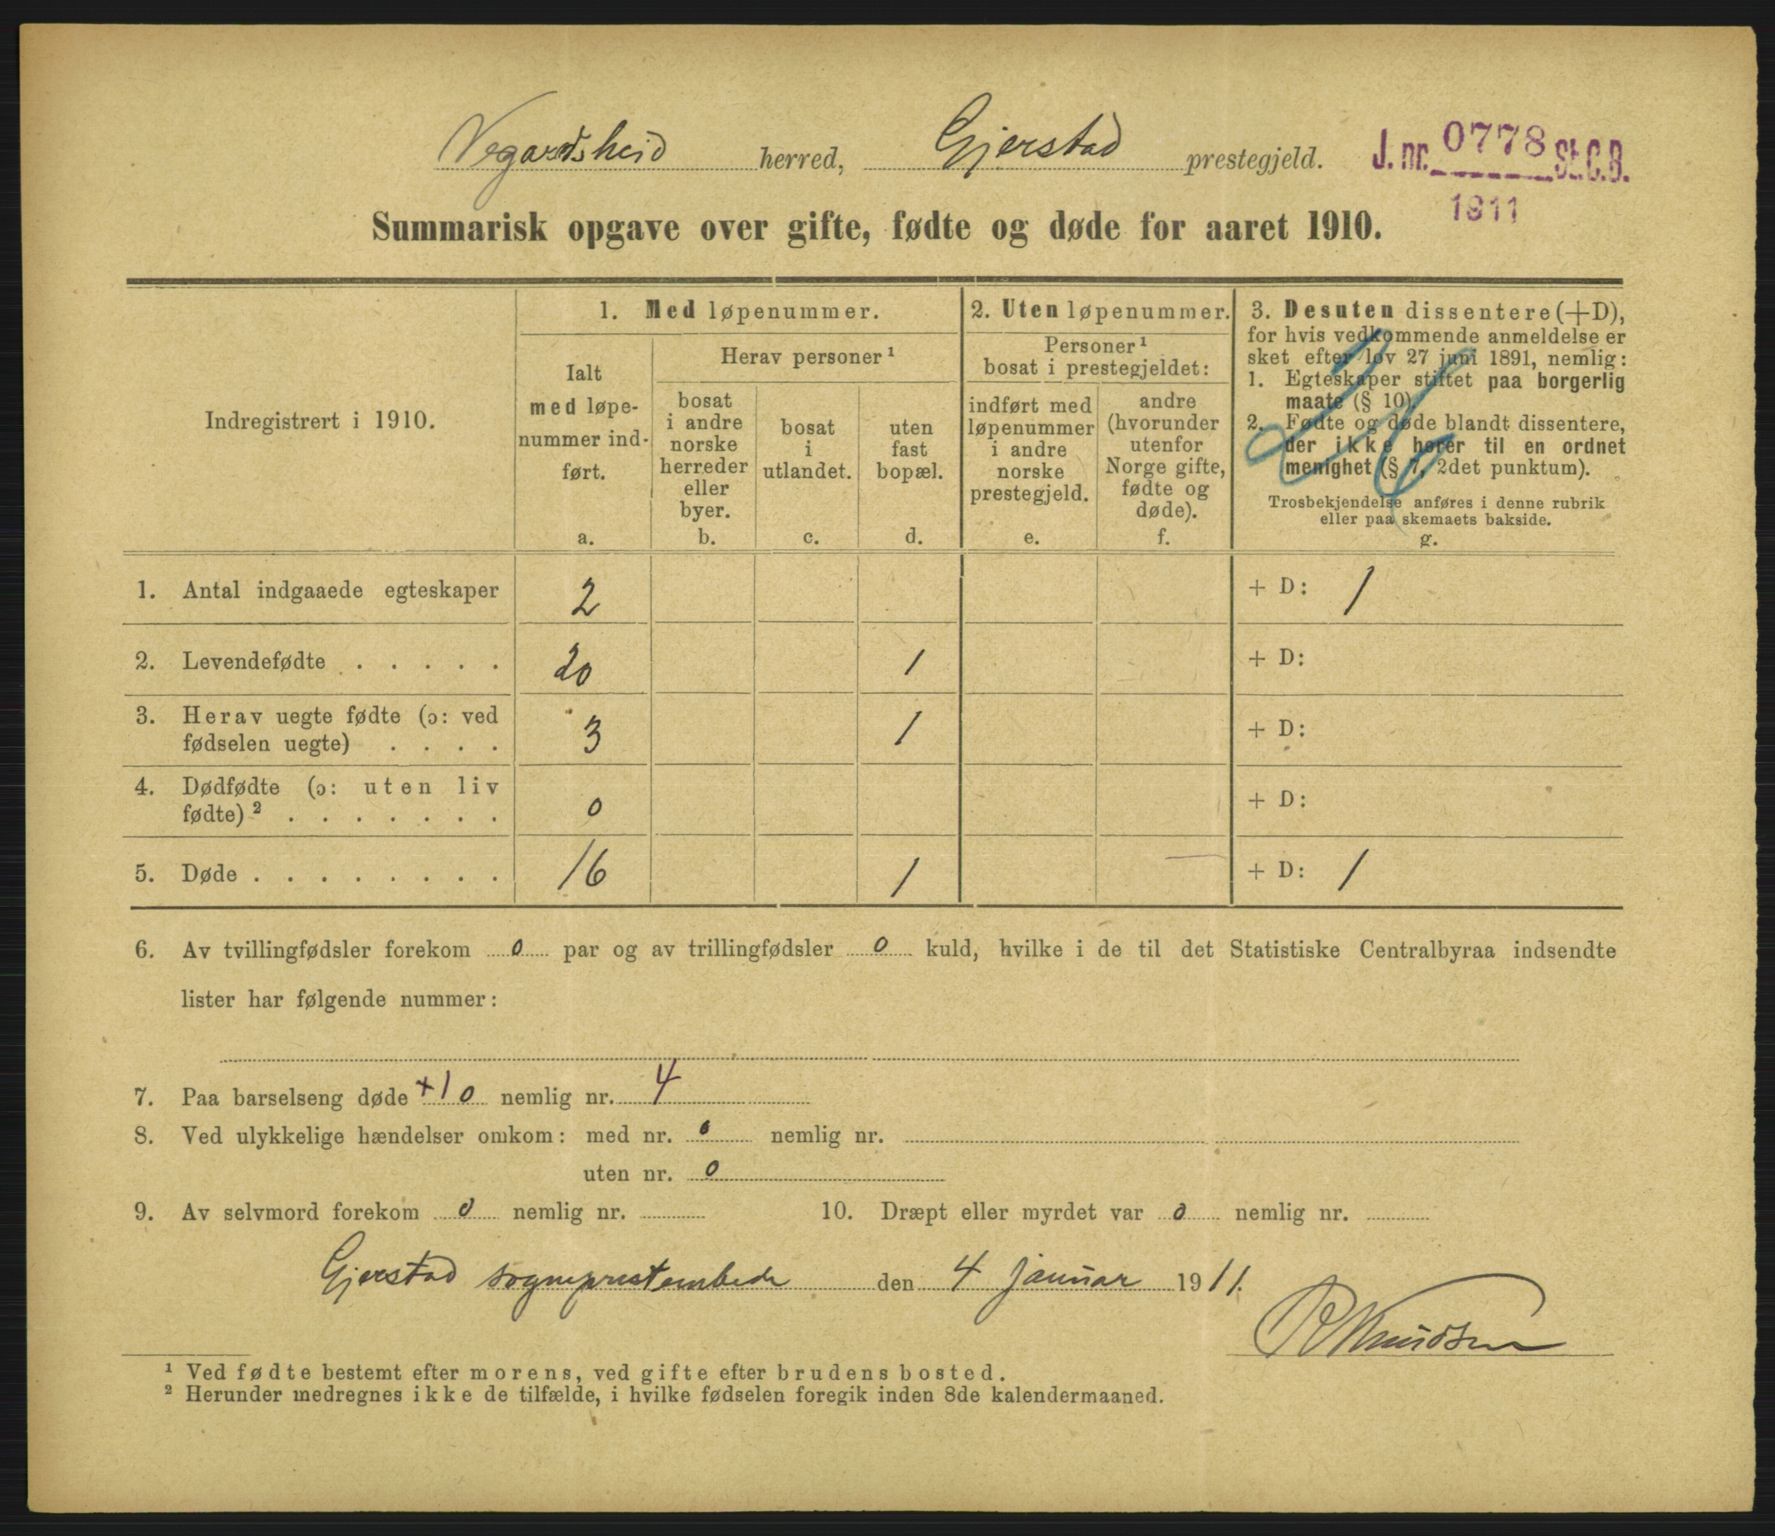 Vegardsheid herred, Gjerstad prestegjeld.
J. nr. 0778 St.C.B.
1911
Summarisk opgave over gifte, fødte og døde for aaret 1910.
Indregistrert i 1910.
1. Med løpenummer.
Ialt
med løpe-
nummer ind-
ført.
a.
Herav personer ¹
bosat
i andre
norske
herreder
eller
byer.
b.
bosat
i
utlandet.
c.
uten
fast
bopæl.
d.
2. Uten løpenummer.
Personer ¹
bosat i prestegjeldet:
indført med
løpenummer
i andre
norske
prestegjeld.
e.
andre
(hvorunder
utenfor
Norge gifte,
fødte og
døde).
f.
3. Desuten dissentere (+D),
for hvis vedkommende anmeldelse er
sket efter lov 27 juni 1891, nemlig:
1. Egteskaper stiftet paa borgerlig
maate (§ 10).
2. Fødte og døde blandt dissentere,
der ikke hører til en ordnet
menighet (§ 7, 2det punktum).
Trosbekjendelse anføres i denne rubrik
eller paa skemaets bakside.
g.
1. Antal indgaaede egteskaper 2 + D: 1
2. Levendefødte . . . . . 20 1 + D:
3. Herav uegte fødte (ɔ: ved
fødselen uegte) . . . . 3 1 + D:
4. Dødfødte (ɔ: uten liv
fødte) ² . . . . . . . 0 + D:
5. Døde . . . . . . . . 16 1 + D: 1
6. Av tvillingfødsler forekom 0 par og av trillingfødsler 0 kuld, hvilke i de til det Statistiske Centralbyraa indsendte
lister har følgende nummer:
7. Paa barselseng døde +1 0 nemlig nr. 4
8. Ved ulykkelige hændelser omkom: med nr. 0 nemlig nr.
uten nr. 0
9. Av selvmord forekom 0 nemlig nr. 10. Dræpt eller myrdet var 0 nemlig nr.
Gjerstad sogneprestembede den 4 januar 1911.
R Knudsen
¹ Ved fødte bestemt efter morens, ved gifte efter brudens bosted.
² Herunder medregnes ikke de tilfælde, i hvilke fødselen foregik inden 8de kalendermaaned.